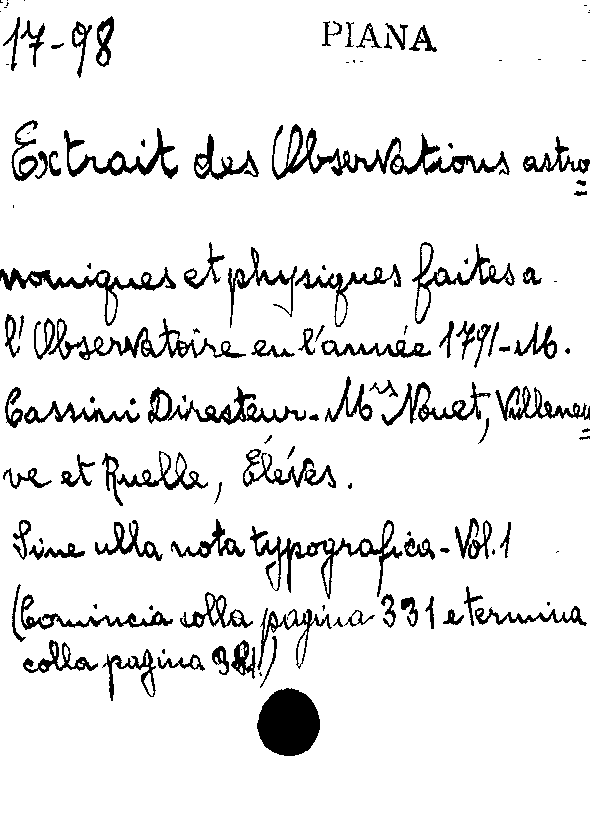 17-98 PIANA
Extrait des Observations astro=
nomiques et physiques faites a
l'Observatoire en l'année 1791-M.
Cassini Directeur. M.rs Nouet, Villeneu=
ve et Ruelle, Élévés.
Sine ulla nota typografica-Vol. 1
(Comincia colla pagina 331 e termina
colla pagina 381.)